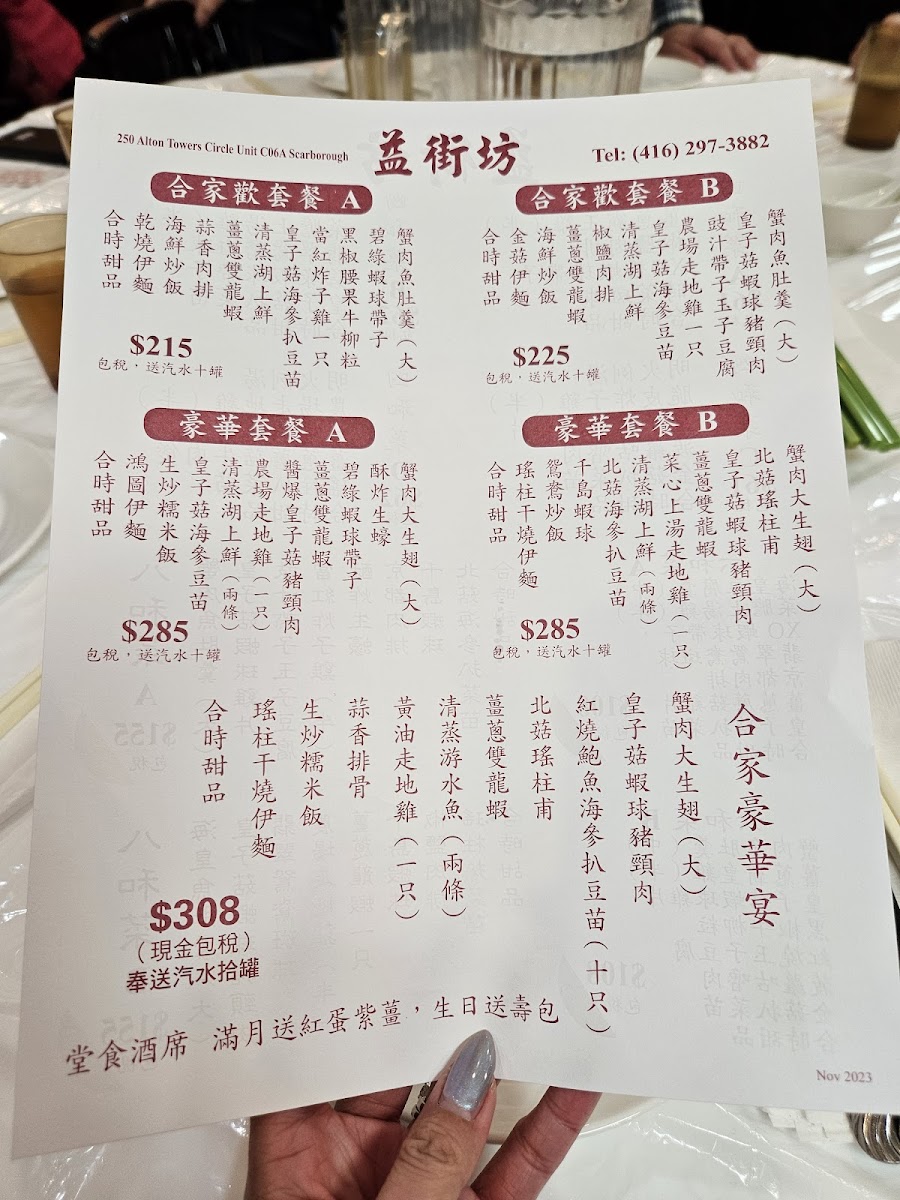 250 Alton Towers Circle Unit C06A Scarborough
益街坊
Tel: (416) 297-3882
合家歡套餐 A
蟹肉魚肚羹(大)
碧綠蝦球帶子
黑椒腰果牛柳粒
當紅炸子雞一只
皇子菇海參扒豆苗
清蒸湖上鮮
薑蔥雙龍蝦
蒜香肉排
海鮮炒飯
乾燒伊麵
合時甜品
$215
包稅,送汽水十罐
合家歡套餐 B
蟹肉魚肚羹(大)
皇子菇蝦球豬頸肉
豉汁帶子玉子豆腐
農場走地雞一只
皇子菇海參豆苗
清蒸湖上鮮
椒鹽肉排
薑蔥雙龍蝦
海鮮炒飯
金菇伊麵
合時甜品
$225
包稅,送汽水十罐
豪華套餐 A
蟹肉大生翅(大)
酥炸生蠔
碧綠蝦球帶子
薑蔥雙龍蝦
醬爆皇子菇豬頸肉
農場走地雞(一只)
清蒸湖上鮮(兩條)
皇子菇海參豆苗
生炒糯米飯
鴻圖伊麵
合時甜品
$285
包稅,送汽水十罐
豪華套餐 B
蟹肉大生翅(大)
北菇瑤柱甫
皇子菇蝦球豬頸肉
薑蔥雙龍蝦
菜心上湯走地雞(一只)
清蒸湖上鮮(兩條)
北菇海參扒豆苗
千島蝦球
鴛鴦炒飯
瑤柱干燒伊麵
合時甜品
$285
包稅,送汽水十罐
合家豪華宴
蟹肉大生翅(大)
皇子菇蝦球豬頸肉
紅燒鮑魚海參扒豆苗(十只)
北菇瑤柱甫
薑蔥雙龍蝦
清蒸游水魚(兩條)
黃油走地雞(一只)
蒜香排骨
生炒糯米飯
瑤柱干燒伊麵
合時甜品
$308
(現金包稅)
奉送汽水拾罐
堂食酒席 滿月送紅蛋紫薑,生日送壽包
Nov 2023